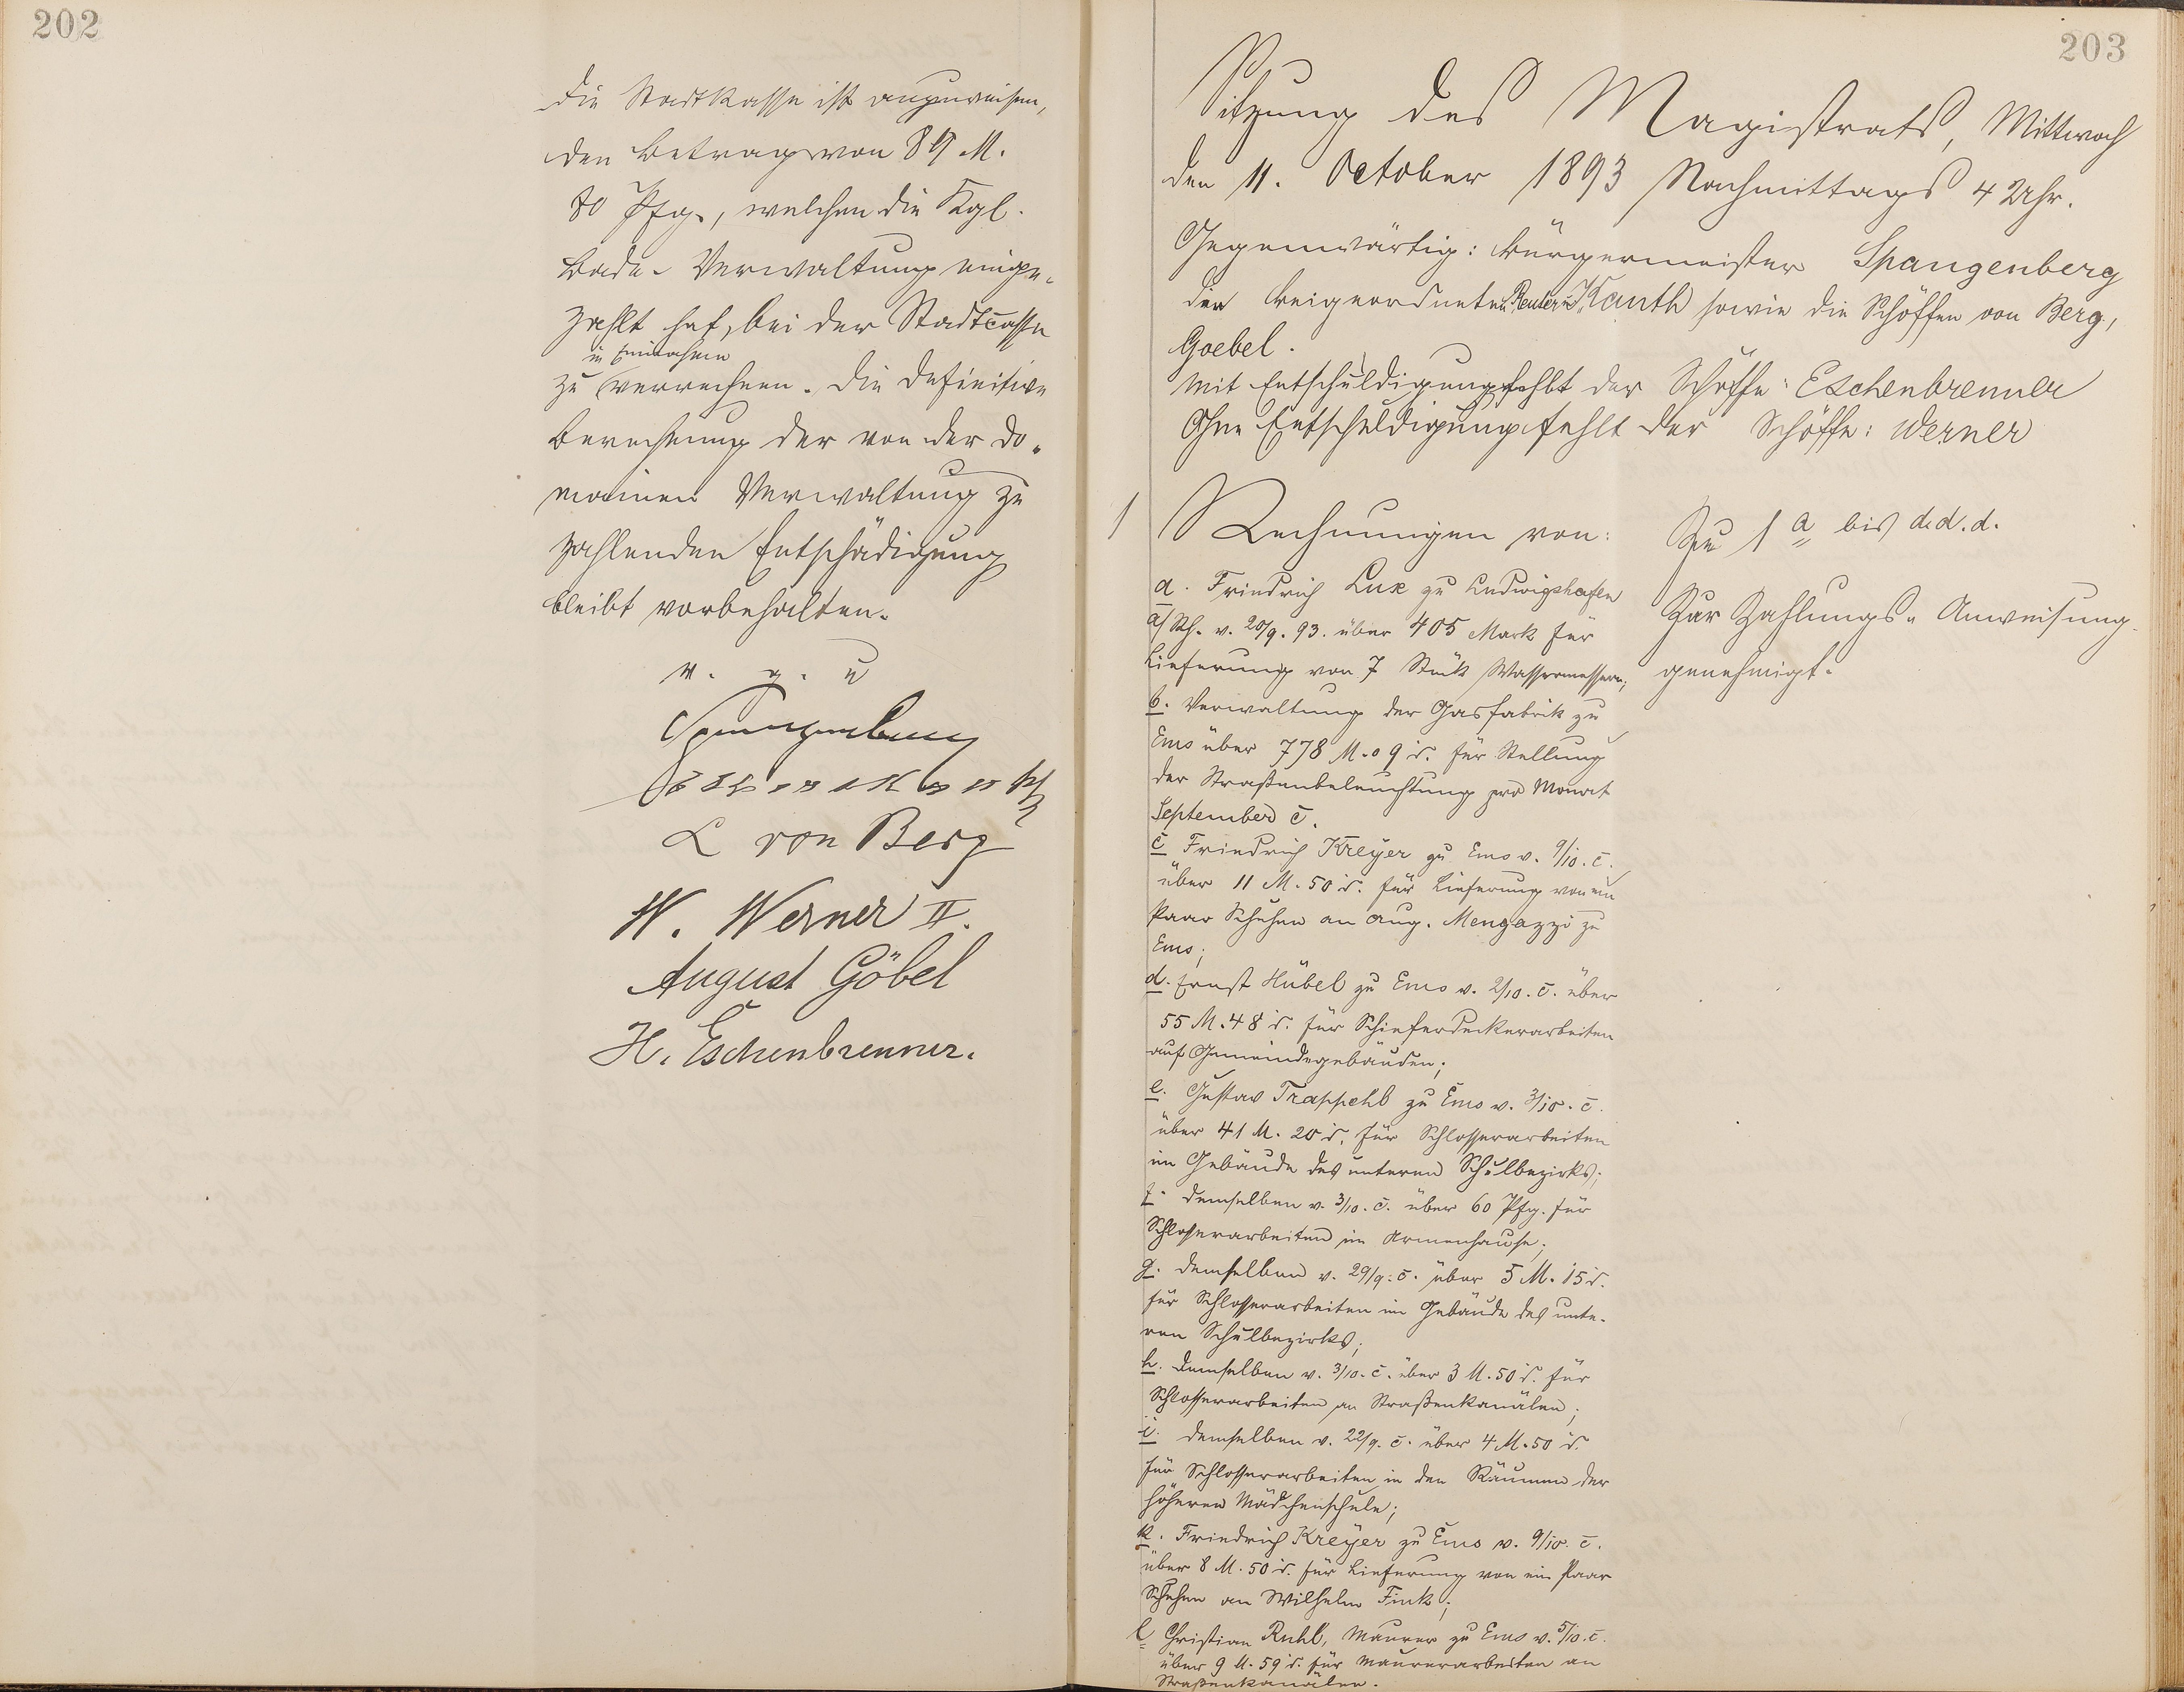 202
Die Stadtkasse ist anzuweisen,
den Betrag von 89 M.
80 Pfg., welchen die Kgl.
Bade-Verwaltung einge-
zahlt hat, bei der Stadtcasse
in Einnahme
zu verrechnen. Die definitive
Berechnung der von der Do-
mainen Verwaltung zu
zahlenden Entschädigung
bleibt vorbehalten.
v. g. u
Spangenberg
L von Berg
W. Werner II.
August Göbel
H. Eschenbrenner.
203
Sitzung des Magistrats, Mittwoch
den 11. October 1893 Nachmittags 4 Uhr.
Gegenwärtig: Bürgermeister Spangenberg
die Beigeordneten Reuter u. Kauth sowie die Schöffen von Berg,
Goebel.
Mit Entschuldigung fehlt der Schöffe: Eschenbrenner
Ohne Entschuldigung fehlt der Schöffe: Werner
1 Rechnungen von:
a. Friedrich Lux zu Ludwigshafen
a/Rh. v. 20/9. 93. über 405 Mark für
Lieferung von 7 Stück Wassermessern;
b. Verwaltung der Gasfabrik zu
Ems über 778 M. 09 d. für Stellung
der Straßenbeleuchtung pro Monat
September c.
c Friedrich Kreyer zu Ems v. 9/10. c.
über 11 M. 50 d. für Lieferung von ein
Paar Schuhen an Aug. Mengazzi zu
Ems;
d. Ernst Hübel zu Ems v. 2/10. c. über
55 M. 48 d. für Schieferdeckerarbeiten
auf Gemeindegebäuden;
e. Gustav Trappehl zu Ems v. 3/10. c.
über 41 M. 20 d. für Schlosserarbeiten
im Gebäude des unteren Schulbezirks;
f. demselben v. 3/10. c. über 60 Pfg. für
Schlosserarbeiten im Armenhause;
g. demselben v. 29/9. c. über 5 M. 15 d.
für Schlosserarbeiten im Gebäude des unte-
ren Schulbezirks;
h. demselben v. 3/10. c. über 3 M. 50 d. für
Schlosserarbeiten an Straßenkanälen;
i. demselben v. 22/9. c. über 4 M. 50 d.
für Schlosserarbeiten in den Räumen der
höheren Mädchenschule;
k. Friedrich Kreyer zu Ems v. 9/10. c.
über 8 M. 50 d. für Lieferung von ein Paar
Schuhen an Wilhelm Fink;
l Christian Ruhl, Maurer zu Ems v. 5/10. c.
über 9 M. 59 d. für Maurerarbeiten an
Straßenkanälen.
Zu 1 a bis d.d.d.
Zur Zahlungs-Anweisung
genehmigt.